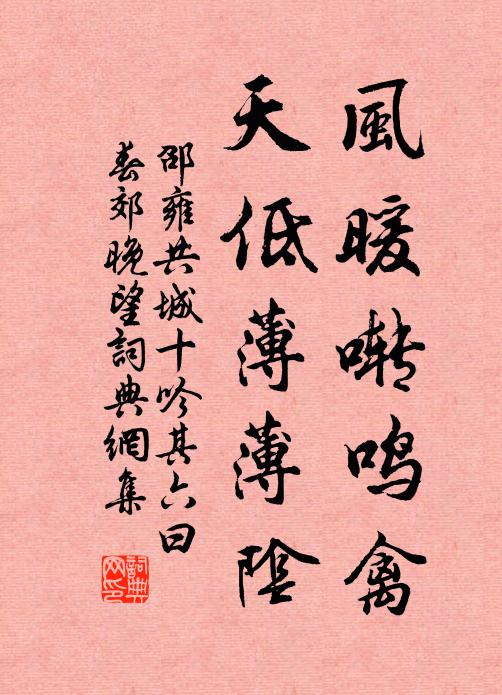 風暖嘲鳴禽
天低薄薄陰
邵雍共城十吟其六曰
春郊晚望詞典網集
詞典網印